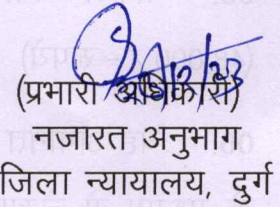 (प्रभारी अधिकारी)
नजारत अनुभाग
जिला न्यायालय, दुर्ग